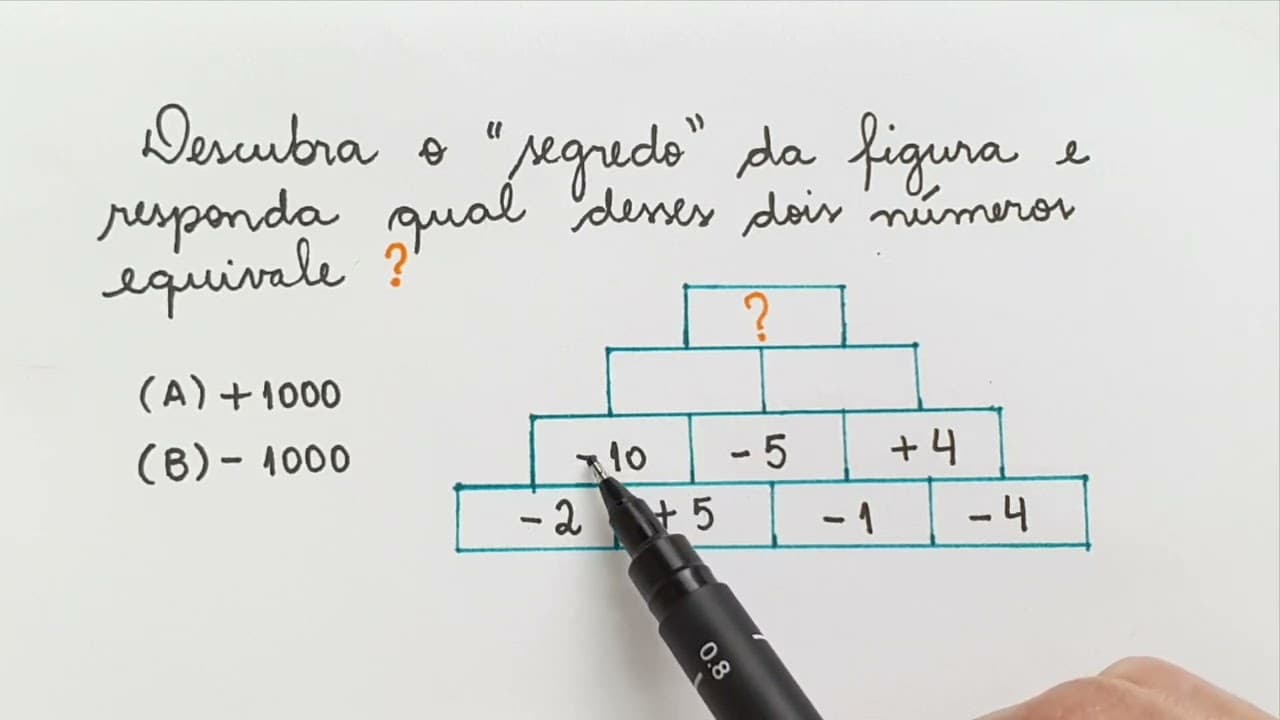 Descubra o "segredo" da figura e
responda qual desses dois números
equivale ?
(A) + 1000
(B) - 1000
?
- 10 - 5 + 4
- 2 + 5 - 1 - 4
0.8